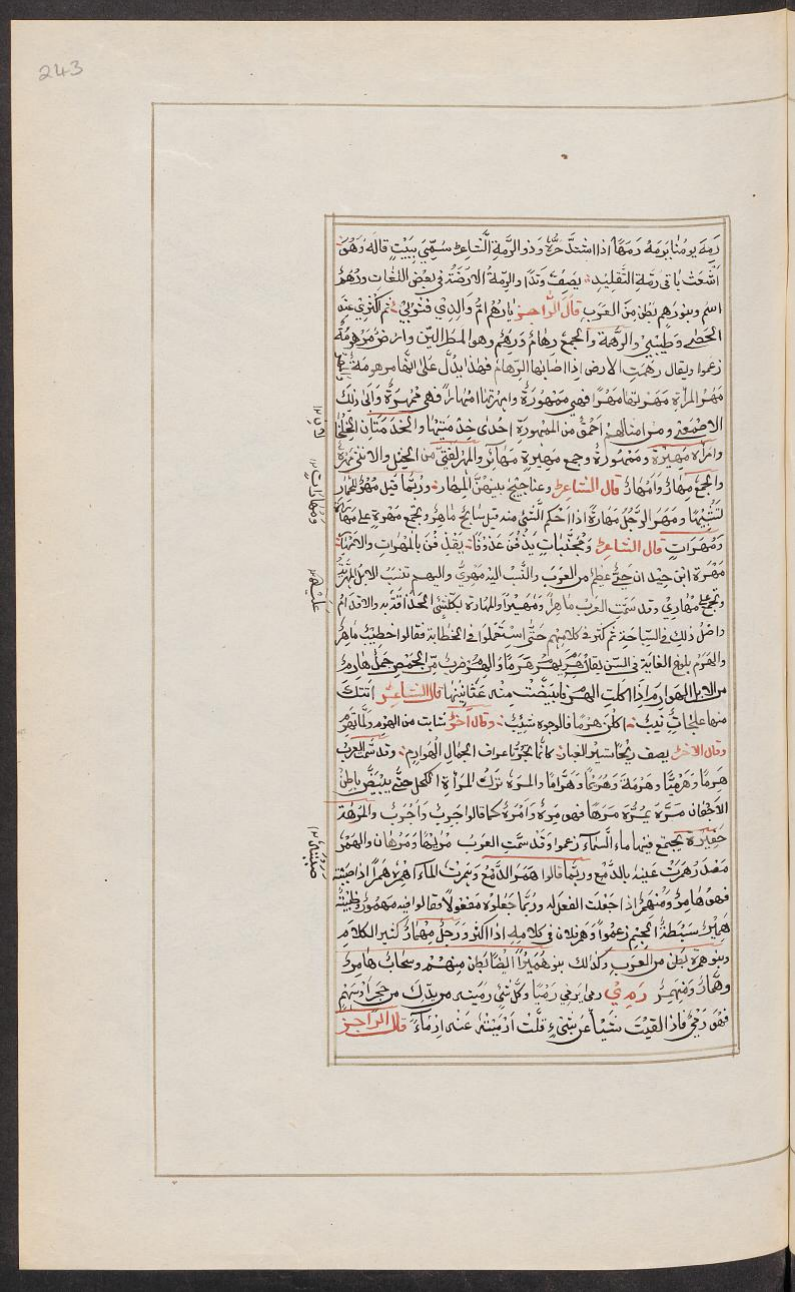 243
رَمِهَ يومُنا يَرمَهُ رَمَهًا اذا اشتدَّ حرُّهُ وذو الرُّمّة الشّاعر سُمِّيَ بِبَيْتٍ قاله وَهُوَ
اَشْعَثُ باقي رُمّةِ التَّقليدِ يصِفُ وَتدًا والرِّمةُ الارَضَةُ في بعض اللغات ورُهْمٌ
اسم وبنو رُهم بَطنٌ مِنَ العَرَبِ قالَ الرَّاجز يا رُهْمُ امُّ والِدِي فثُوبي ثم اكثري عنه
الحَصٰى وَطِيْبِي والرِّهْمَة والجمعُ رِهامٌ ورِهَمٌ وهوا لمطرُ اللّين وارضٌ مَرهومةٌ
زعموا ويقال رهَمَتِ الارض اذا اصابها الرّهامُ فهٰذا يدلُّ علىٰ انّها مرهومةٌ والمهر
مَهْرُ المرأة مَهَرتُها مَهْرًا فهي مَمْهُورَةٌ وامهَرْتُها امهارًا فهي مُمْهَرَةٌ وابى ذلك
الاصْمَعِيّ ومن امثالهم احمقُ من الممهورة احدىٰ خِدمتَيْها والخَدَمَتانِ الخلخا
وامرأة مَهِيْرَة ومَمْهُورَةٌ وجمع مهِيرةٍ مَهَائرُ والمُهرُ الفتيّ من الخيل والانثى مُهرةٌ
والجمع مِهارٌ وَاَمهارٌ قال الشاعر وعناجيجُ بينهنّ المِهار وربّما قيل مُهْرٌ للحمار
تشبيهًا ومَهَر الرَّجُل مَهارةً اذا احكم الشَّئ منه قيل سابحٌ ماهِرٌ وتجمع مُهرة على مُهَر
ومُهَراتٍ قال الشاعر ومُجنَّباتٍ يذُقْنَ عَذُوفًا يَقْذِفْنَ بالمُهَراتِ والاَمْهَارِ
مَهْرَة ابن حَيْدان حيٌّ عظيم من العَرَب والنَّسَب اليه مَهرِيٌّ واليهم تنسَب الابلُ المَهرِيّةُ
وتجمع على مَهارِيْ وقد سَمّت العربُ ماهرًا ومُهَيْرًا والمَهارة بكلّ شئ الحذاقةُ به والاقدامُ
واصْلُ ذلك في السِّباحةِ ثم كثر في كلامِهِم حَتّٰى اسْتَعْمَلوا في الخطابة فقالوا خطيبٌ ماهرٌ
والهَرَمُ بلوغ الغاية في السِّن يقال هَرِمَ يهرَمُ هَرَمًا والهَرْمُ ضربٌ من الحَمْضِ جمَلٌ هارِمٌ
من الابل الهوارم اذا اكلتِ الهرم فابيَضَّتْ منه عَثانينُها قال الشاعر اتتكَ
منها علجاتٌ نيبُ اكَلْنَ هَرْمًا فالوجوه شيبُ وقال آخر شابت من الهرم ولمّا تهرم
وقال الآخر يصف ريحًا تسير الغبار كانّما تجرُّ اعراف الجمال الهوارم وقد سمَّت العرب
هَرِمًا وهَرْمِيًّا وهَرْمَة وهُرَيْمًا وهَرّامًا والمرَهُ تركُ المرأة الكحل حتّٰى يبيضَّ باطنُ
الاجفان مَرِهَ يمرَهُ مَرَهًا فهو مَرِهٌ وَاَمرَهُ كما قالوا جَرِبٌ وَاَجْرَبُ والمُرْهَةُ
حَفِيْرة يجتمع فيها ماء السَّمآءِ زعموا وقد سمَّت العربُ مُرَيهًا ومَرْهان والهَمْرُ
مَصْدَر هَمَرَتْ عينه بالدّمع وربّما قالوا همَر الدَّمعُ وهَمرتُ الماء اهْمِرُهُ همرًا اذا صببته
فهو هامرٌ ومُنهمِرٌ اذا جعلت الفعل له وربّما جعلوه مفعولًا فقالوا فيه مهمورٌ وظَبْيَةٌ
هَمِيْرٌ سَبْطَةُ الجِسْم زعموا وهمَر فلان في كلامه اذا اكثر ورجُلٌ مِهْمارٌ كثير الكلام
وبنو هَمْرة بَطن من العَرَب وكذلك بنو هُمَيْر ايضًا بطن منهم وسحابٌ هامرٌ
وهَمّارٌ ومُنهمِرٌ رَمِيْ رمىٰ يَرمي رَمْيًا وكلّ شئ رمَيته من يدك من حجَر او سَهْمٍ
فهو رَمِيٌّ فاذا القيتَ شَيْئًا عن شئٍ قلتَ ارمَيتُه عنه ارمَاءً قال الرّاجز